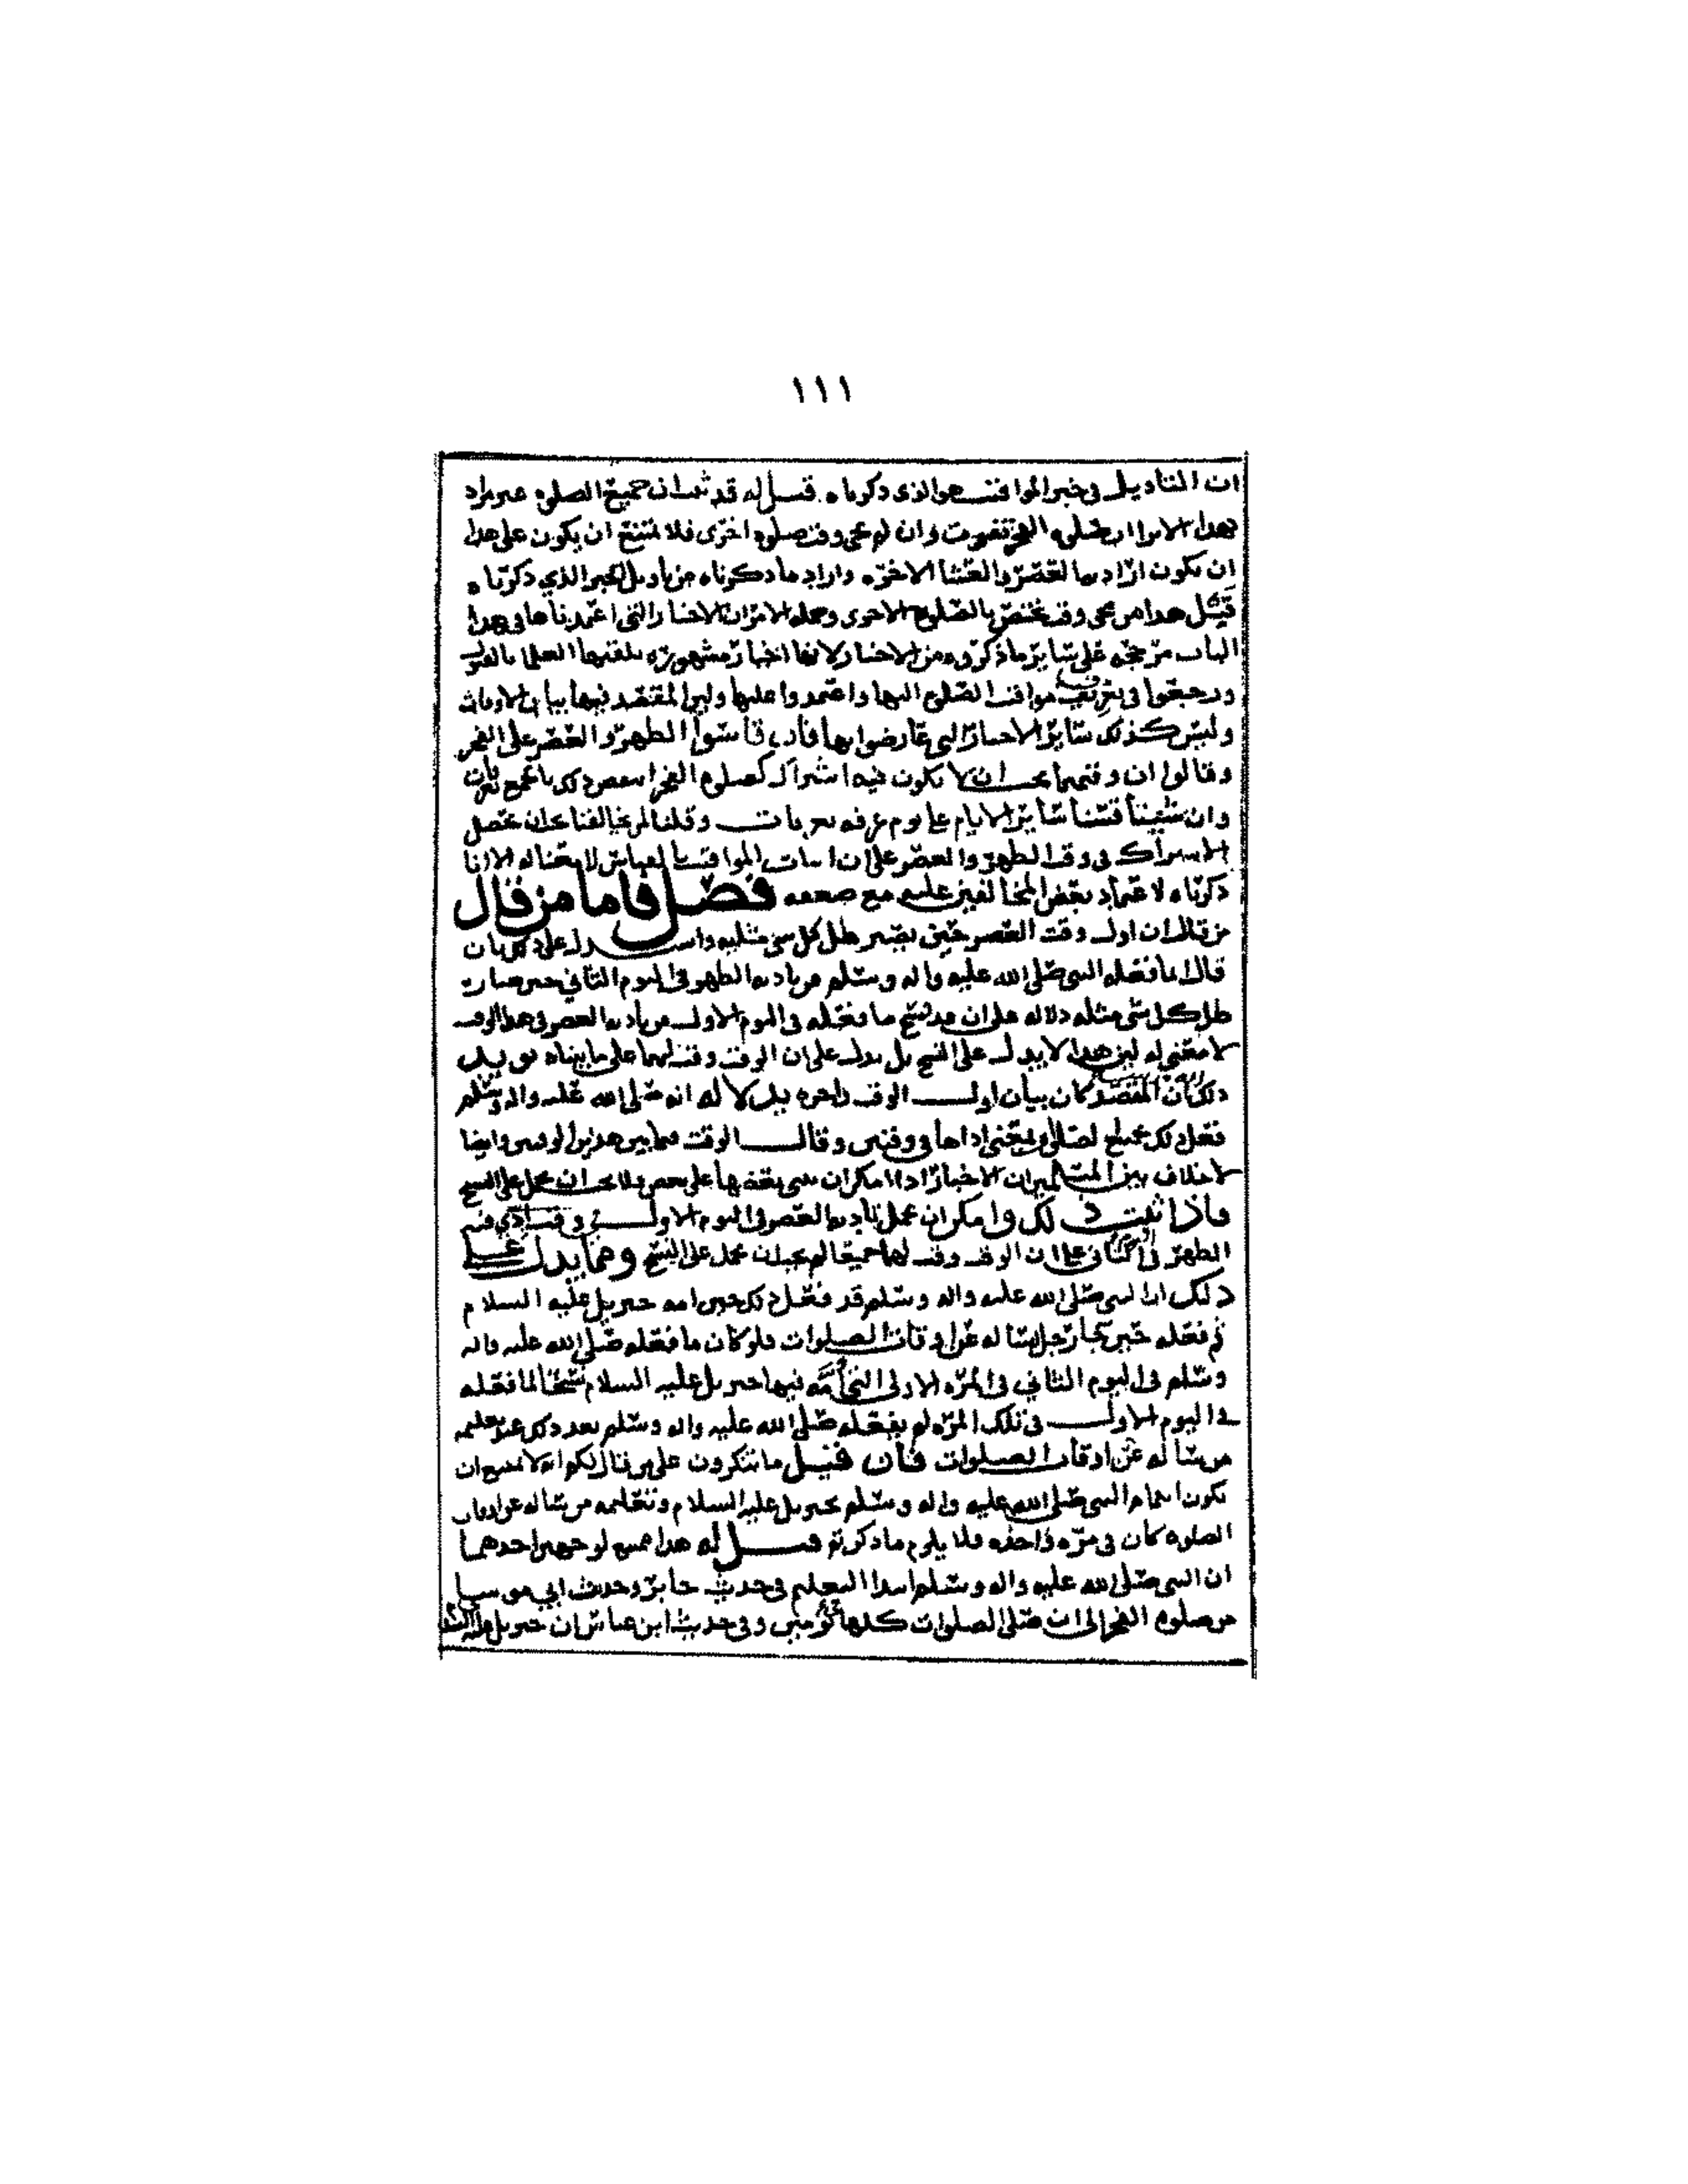 ١١١
ان التاويل في خبر المواقيت هو الذي ذكرناه قيل له قد ثبت ان جميع الصلوه غير مراد
بهذا لا نرا ان صلوه الفجر تفوت وان لم يجي وقت صلوه اخرى فلا يمتنع ان يكون على هذا
ان يكون اراد بها العصر والعشا الاخره واراد ما ذكرناه من تاويل الخبر الذي ذكرناه
قيل هذا من مجي وقت يختص بالصلوه الاخرى وجمله الامر ان الاخبار التي اعتمدناها في هذا
الباب مرجحه على ساير ما ذكروه من الاخبار لانها اخبار مشهوره تلقتها العلما بالقبول
ورجعوا في تعريف مواقيت الصلوه اليها واعتمدوا عليها وليرا لمقتصد فيها بيان الاوقات
وليس كذلك ساير الاخبار التي عارضوا بها فان قاسوا الظهر والعصر على الفجر
وقالوا ان وقتهما يجب ان لا يكون فيه اشتراك كصلوه الفجر انتقض ذلك بالجمع بعرفات
وان شينا قسنا ساير الايام على يوم عرفه بعرفات وقلنا لمن يخالفنا يجب ان يحصل
الاشتراك في وقت الظهر والعصر على ان اثبات المواقيت بالقياس لا معنى له الا انا
ذكرناه لاعتماد بعض المخالفين عليه مع ضعفه فصل فاما من قال
من قال ان اول وقت العصر حين يصير ظل كل شي مثليه واستدل على ذلك بان
قال ما فعله النبي صلى الله عليه واله وسلم من تاديه الظهر في اليوم الثاني حين صار
ظل كل شي مثله دلاله على ان قد نسخ ما فعله في اليوم الاول من تاديه العصر في هذا الوقت
لا معنى له لان هذا لا يدل على النسخ بل يدل على ان الوقت وقت لهما على ما بيناه يويد
ذلك ان المقصد كان بيان اول الوقت واخره بدلاله انه صلى الله عليه واله وسلم
فعل ذلك بجميع الصلوات بمعنى اداها في وقتين وقال الوقت فيما بين هذين الوقتين وايضا
لا خلاف بين المسلمين ان الاخبار اذا امكن ان نبني بعضها على بعض فلا يجب ان يحمل على النسخ
فاذا ثبت ذلك وامكن ان يحمل تاديه العصر في اليوم الاول في وقت ادي فيه
الظهر في الثاني على ان الوقت وقت لهما جميعا لم يجب ان يحمل على النسخ ومما يدل على
ذلك ان النبي صلى الله عليه واله وسلم قد فعل ذلك حين امه جبريل عليه السلام
ثم فعله حين جا رجل يساله عن اوقات الصلوات فلو كان ما فعله صلى الله عليه واله
وسلم في اليوم الثاني في المره الاولى التي امه فيها جبريل عليه السلام نسخا لما فعله
في اليوم الاول في تلك المره لم يفعله صلى الله عليه واله وسلم بعد ذلك عند تعليمه
من ساله عن اوقات الصلوات فان قيل ما تنكرون على من قال لكم انه لا يمتنع ان
يكون ائتمام النبي صلى الله عليه واله وسلم بجبريل عليه السلام وتعليمه من ساله عن اوقات
الصلوه كان في مره واحده فلا يلزم ما ذكرتم قيل له هذا ممتنع لوجهين احدهما
ان النبي صلى الله عليه واله وسلم ابتدا التعليم في حديث جابر وحديث ابي موسى
من صلوه الفجر الى ان صلى الصلوات كلها يومين وفي حديث ابن عباس ان جبريل عليه السلام